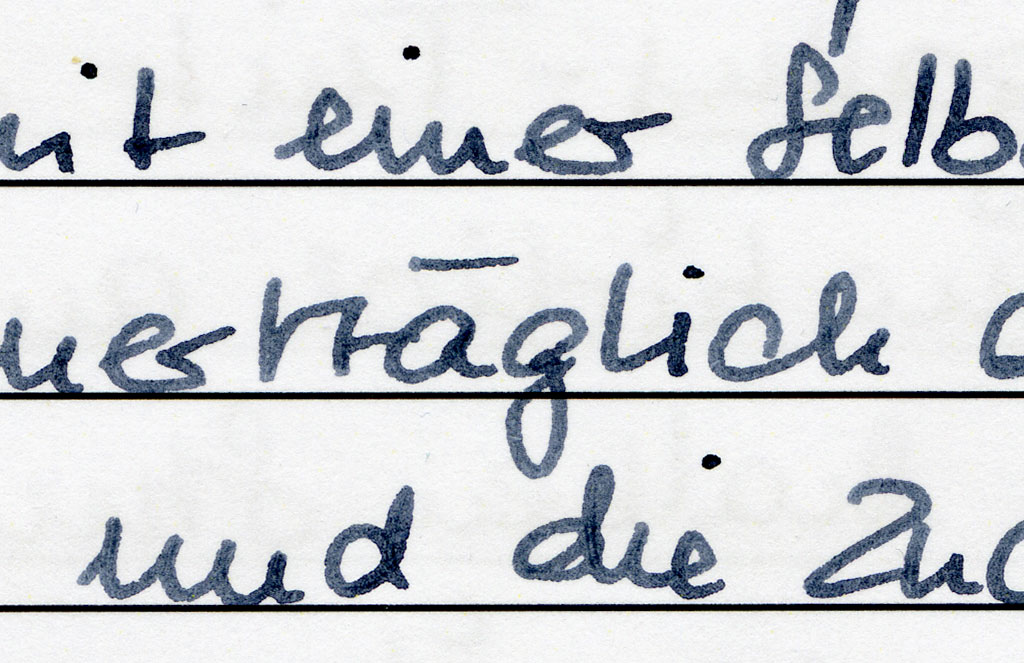 mit einer Selb
nerträglich
und die Zu